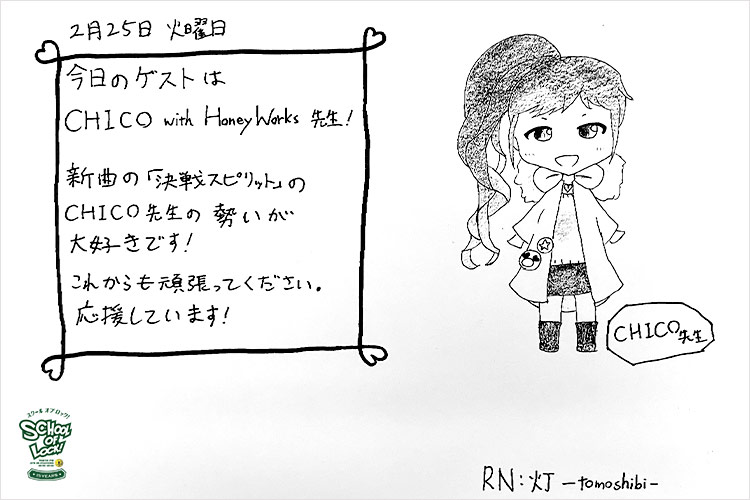 2月25日 火曜日
今日のゲストは
CHICO with HoneyWorks 先生!
新曲の「決戦スピリット」の
CHICO先生の勢いが
大好きです!
これからも頑張ってください。
応援しています!
CHICO先生
スクール オブ ロック!
SCHOOL
OF
LOCK!
RN:灯 -tomoshibi-